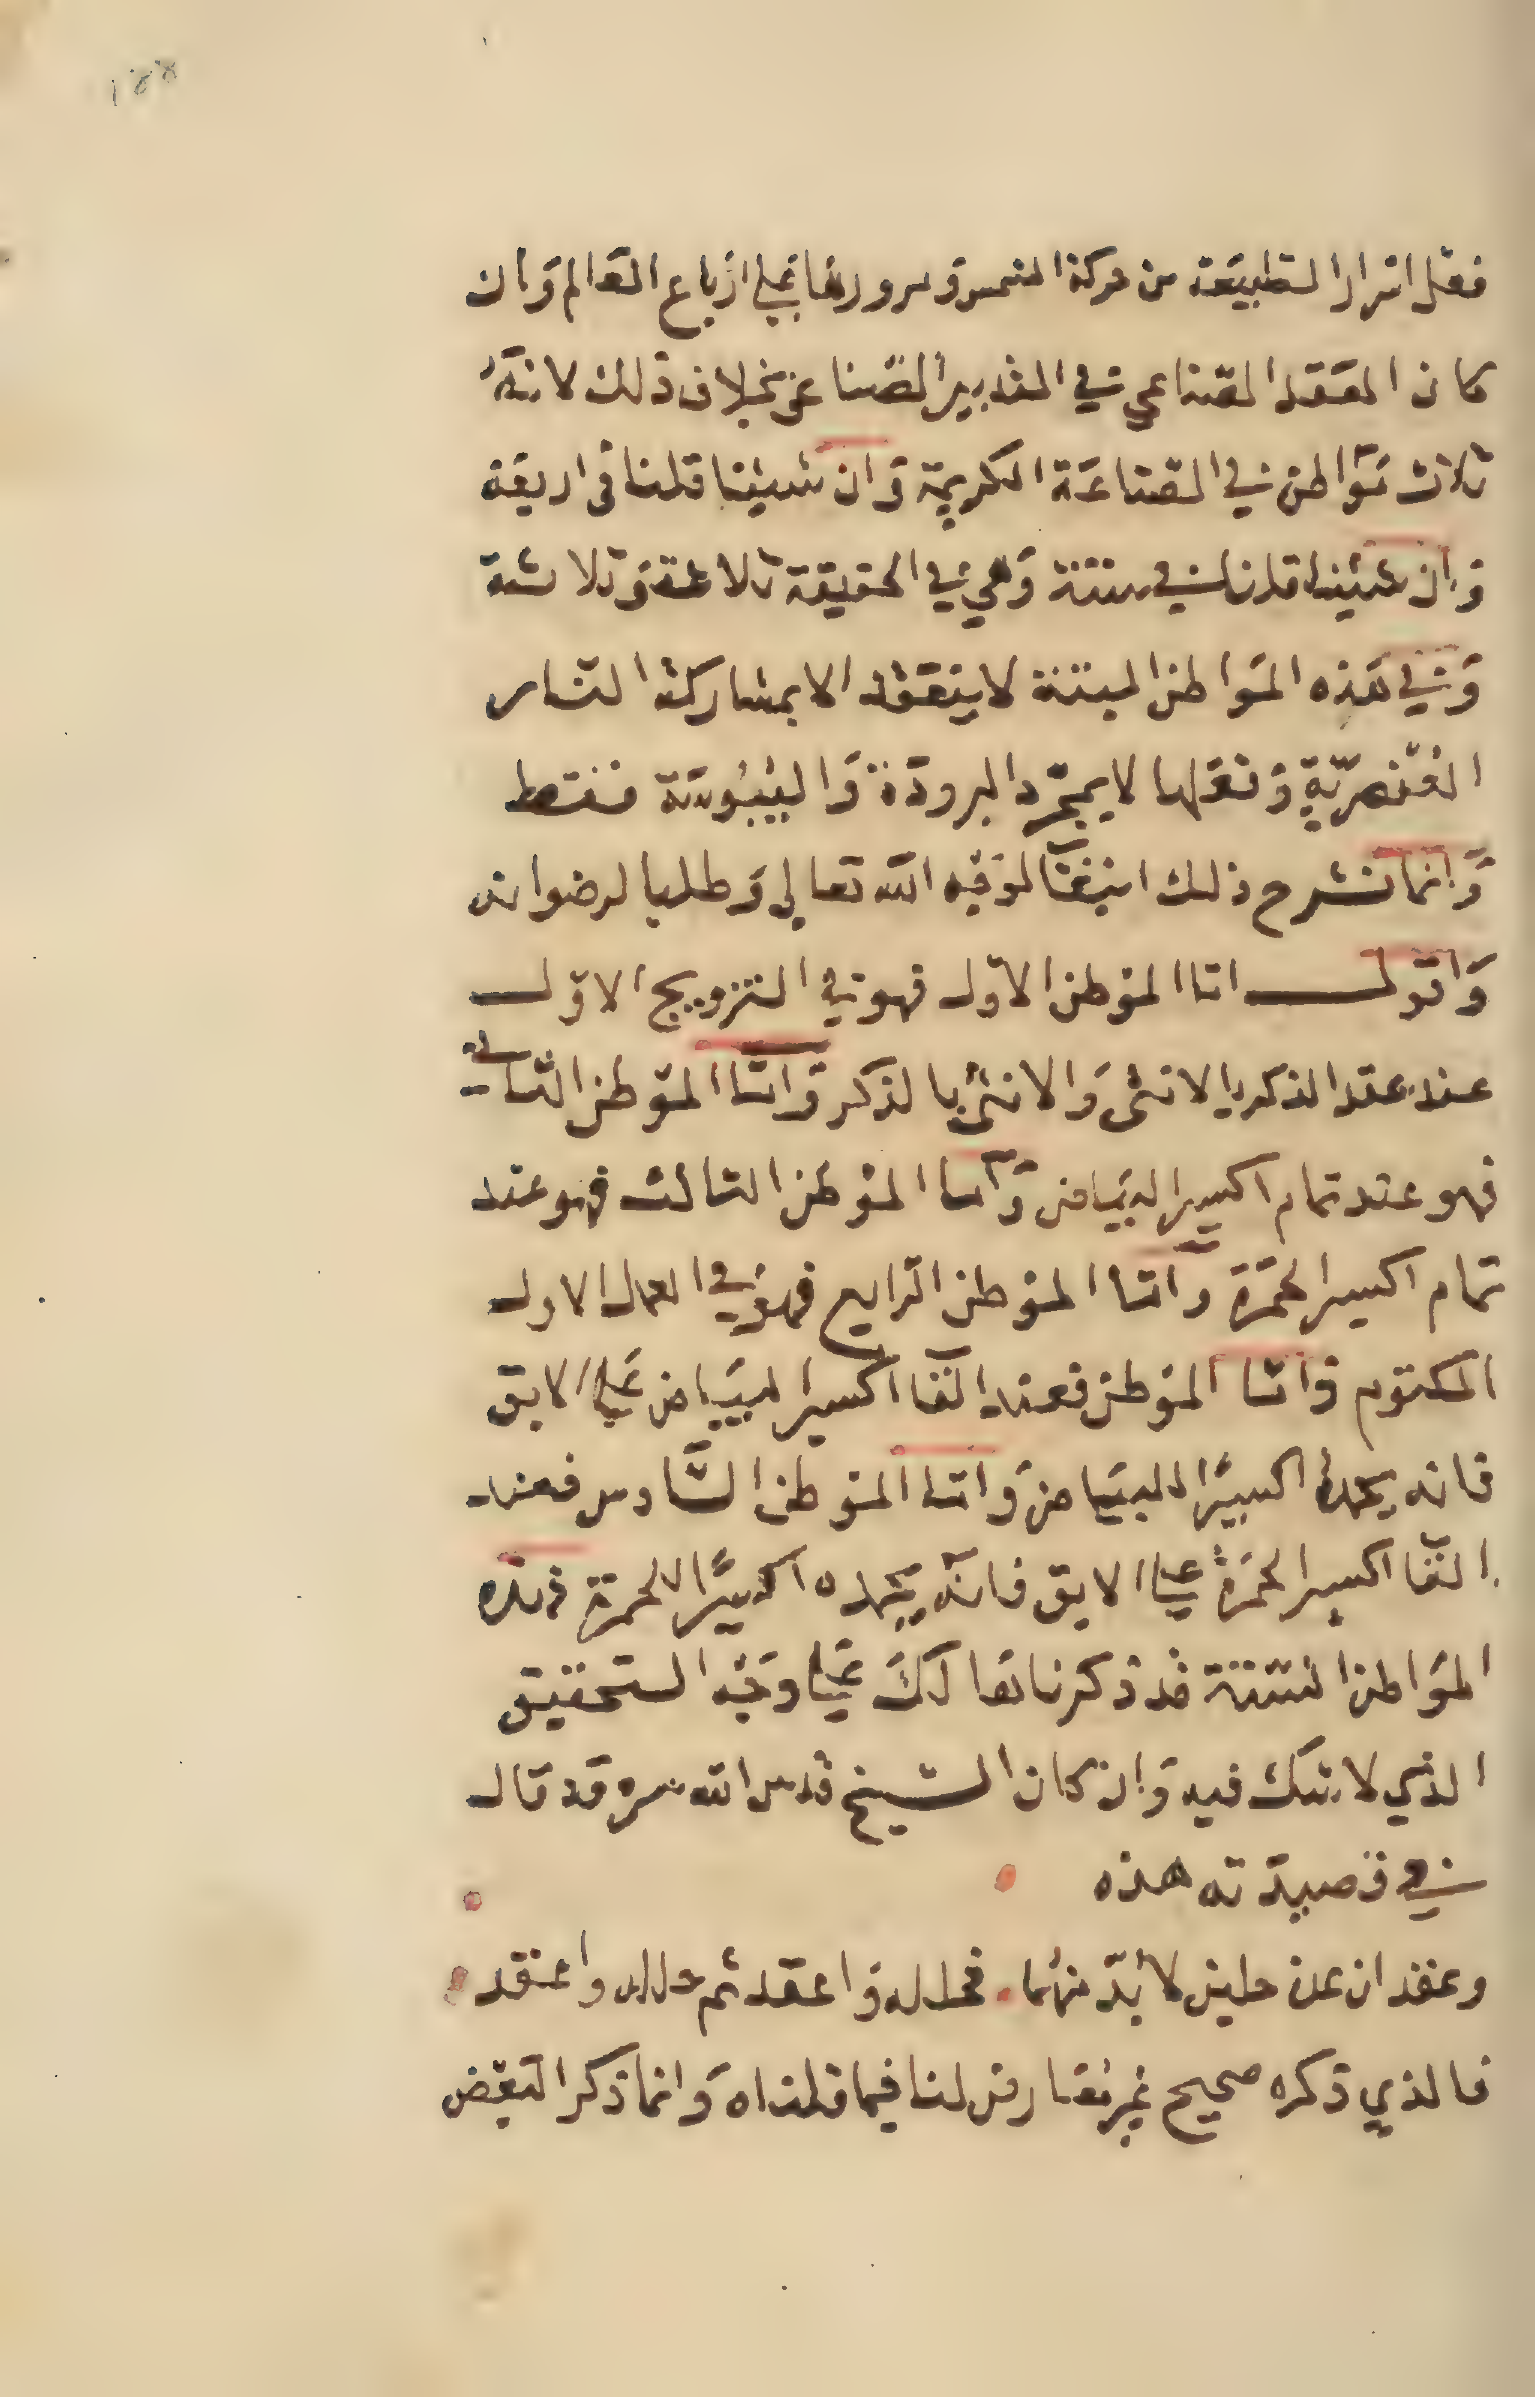 فعل اسرار الطبيعة من حركة الشمس ومرورها على ارباع العالم وان
كان العقد الصناعي في التدبير الصناعي بخلاف ذلك لانه
ثلاث مواطن في الصناعة الكريمة وان شيئنا قلنا في اربعة
وان شيئنا قلنا في ستة وهي في الحقيقة ثلاثة وثلاثة
وفي هذه المواطن الستة لا ينعقد الا بمشاركة النار
العنصرية وفعلها لا بمجرد البرودة واليبوسة فقط
وانما نشرح ذلك ابتغآ لوجه الله تعالي وطلبا لرضوانه
واقول اما الموطن الاول فهو في التزويج الاول
عند عقد الذكر بالانثى والانثى بالذكر واما الموطن الثاني
فهو عند تمام اكسير البياض واما الموطن الثالث فهو عند
تمام اكسير الحمرة واما الموطن الرابع فهو في العمل الاول
المكتوم واما الموطن فعند القآ اكسير البياض على الابق
فانه يحمله اكسيرًا للبياض واما الموطن السادس فعند
القآ اكسير الحمرة على الابق فانه يحمله اكسيرًا للحمرة فهذه
المواطن الستة قد ذكرناها لك على وجه التحقيق
الذي لا شك فيه وان كان الشيخ قدس الله سره قد قال
في قصيدته هذه
وعقدان عن حلين لا بد منهما فحلل واعقد ثم حلل واعقد
فالذي ذكره صحيح غير معارض لنا فيما قلناه وانما ذكر البعض